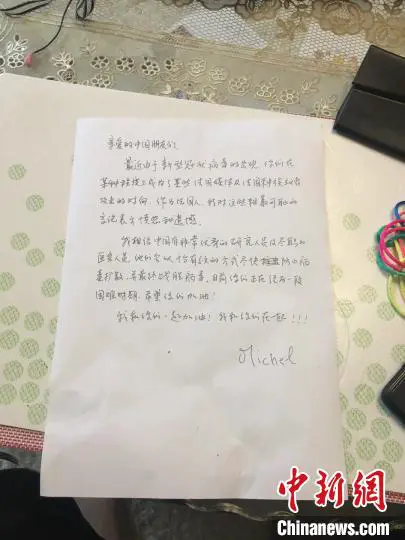 亲爱的中国朋友们,
最近由于新型冠状病毒的出现,你们在
某种程度上成为了某些法国媒体及法国种族
攻击的对向。作为法国人,我对这些极可耻的
言论表示愤怒和遗憾。
我相信中国有非常优秀的研究人员及尽职的
医务人员,他们会以有效的方式尽快防止病
毒扩散,并最终战胜病毒。目前你们正在经历一段
困难时期,希望你们加油!
我和你们一起加油!我和你们在一起!!!
Michel
中新网
Chinanews.com